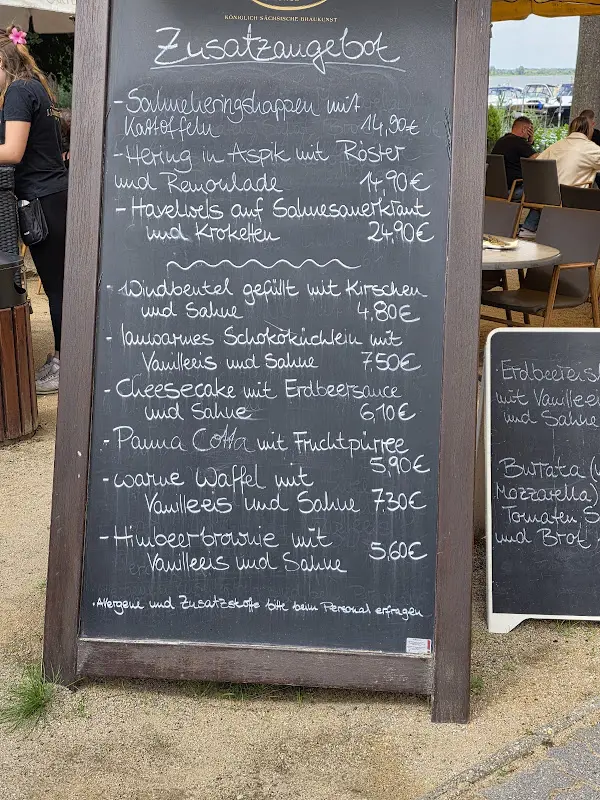 KÖNIGLICH SÄCHSISCHE BRAUKUNST
Zusatzangebot
- Sahneheringshappen mit
Kartoffeln 14,90€
- Hering in Aspik mit Röster
und Remoulade 14,90€
- Havelwels auf Sahnesauerkraut
und Kroketten 24,90€
- Windbeutel gefüllt mit Kirschen
und Sahne 4,80€
- lauwarmes Schokoküchlein mit
Vanilleeis und Sahne 7,50€
- Cheesecake mit Erdbeersauce
und Sahne 6,10€
- Panna Cotta mit Fruchtpürree
5,90€
- warme Waffel mit
Vanilleeis und Sahne 7,30€
- Himbeerbrownie mit
Vanilleeis und Sahne 5,60€
· Allergene und Zusatzstoffe bitte beim Personal erfragen
mit Vanilleeis
und Sahne
Burrata
Mozzarella)
Tomaten
und Brot